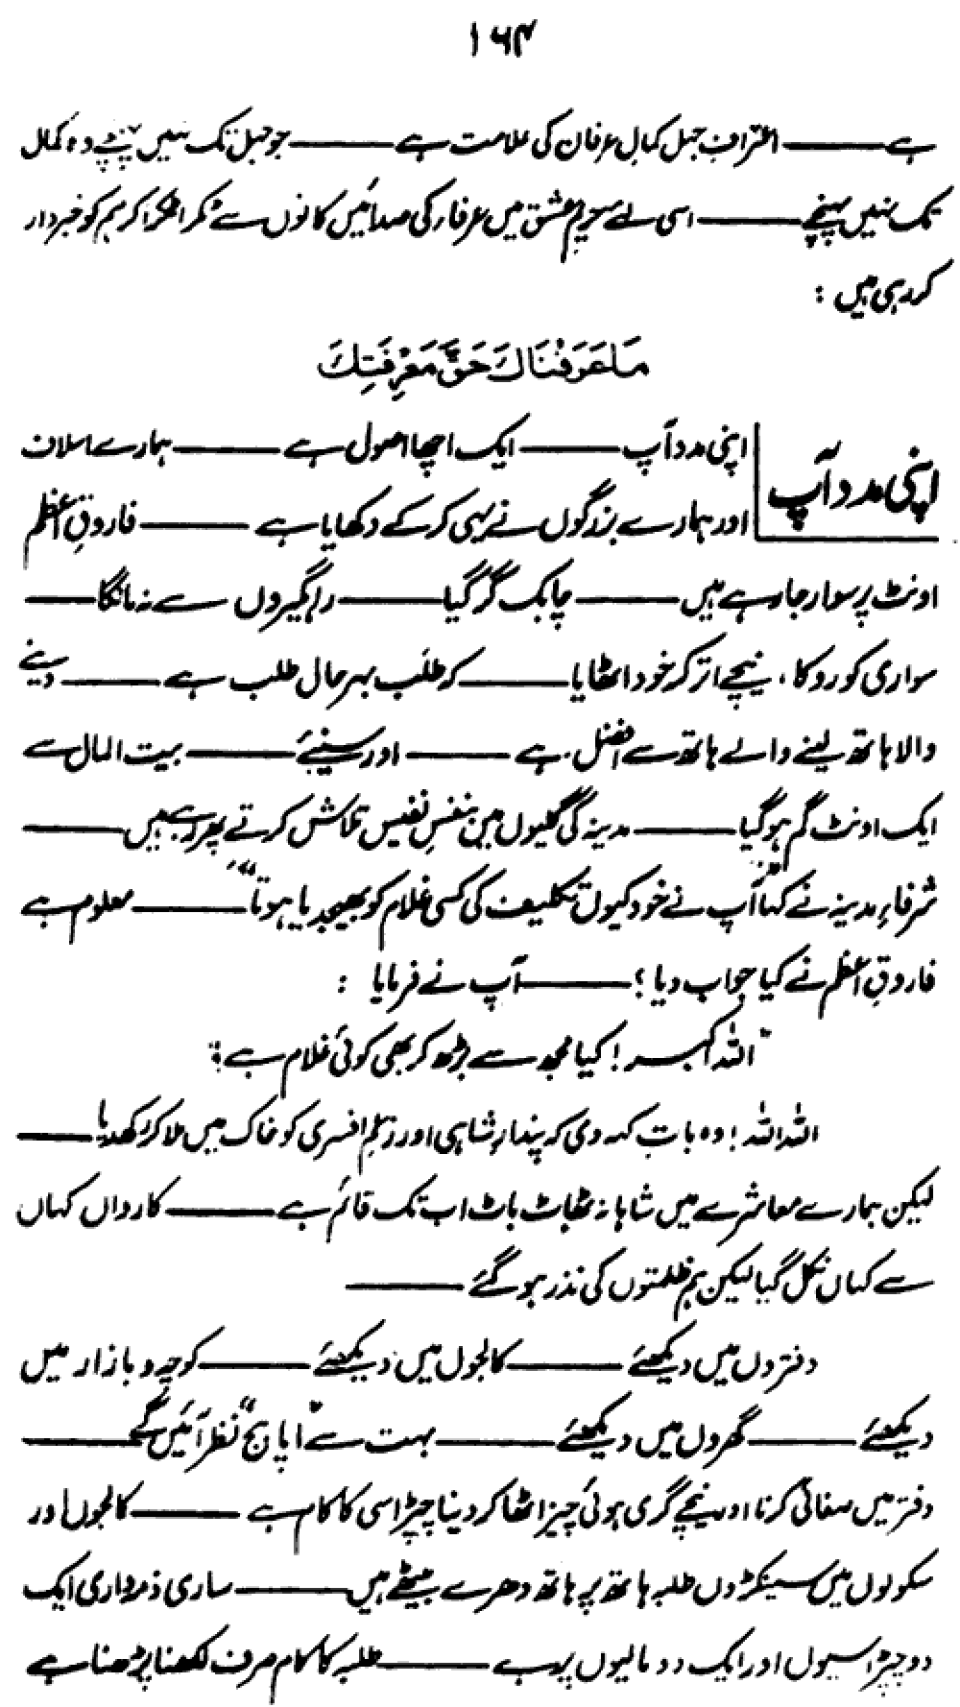 ۱۶۴
ہے ——— اعترافِ جہل کمالِ عرفان کی علامت ہے ——— جو جہل تک نہیں پہنچے وہ کمال
تک نہیں پہنچے ——— اسی لئے حریمِ عشق میں عرفاء کی صدائیں کانوں سے ٹکرا ٹکرا کر ہم کو خبردار
کر رہی ہیں :
مَاعَرَفْنَاكَ حَقَّ مَعْرِفَتِكَ
اپنی مدد آپ
اپنی مدد آپ ——— ایک اچھا اصول ہے ——— ہمارے اسلاف
اور ہمارے بزرگوں نے یہی کر کے دکھایا ہے ——— فاروقِ اعظم
اونٹ پر سوار جا رہے ہیں ——— چابک گر گیا ——— راہگیروں سے نہ مانگا ———
سواری کو روکا، نیچے اتر کر خود اٹھایا ——— کہ طلب بہرحال طلب ہے ——— دینے
والا ہاتھ لینے والے ہاتھ سے افضل ہے ——— اور سنیئے ——— بیت المال سے
ایک اونٹ گم ہو گیا ——— مدینہ کی گلیوں میں بنفسِ نفیس تلاش کرتے پھر رہے ہیں ———
شرفاءِ مدینہ نے کہا "آپ نے خود کیوں تکلیف کی کسی غلام کو بھیجدیا ہوتا" ——— معلوم ہے
فاروقِ اعظم نے کیا جواب دیا ؟ ——— آپ نے فرمایا :
"اللہ اکبر ! کیا مجھ سے بڑھ کر بھی کوئی غلام ہے ؟"
اللہ اللہ ! وہ بات کہہ دی کہ پندارِ شاہی اور زعمِ افسری کو خاک میں ملا کر رکھدیا ———
لیکن ہمارے معاشرے میں شاہانہ ٹھاٹ باٹ اب تک قائم ہے ——— کارواں کہاں
سے کہاں نکل گیا لیکن ہم ظلمتوں کی نذر ہو گئے ———
دفتروں میں دیکھئے ——— کالجوں میں دیکھئے ——— کوچہ و بازار میں
دیکھئے ——— گھروں میں دیکھئے ——— بہت سے "اپاہج" نظر آئیں گے ———
دفتر میں صفائی کرنا اور نیچے گری ہوئی چیز اٹھا کر دینا چپڑاسی کا کام ہے ——— کالجوں اور
سکولوں میں سینکڑوں طلبہ ہاتھ پر ہاتھ دھرے بیٹھے ہیں ——— ساری ذمہ داری ایک
دو چپڑاسیوں اور ایک دو مالیوں پر ہے ——— طلبہ کا کام صرف لکھنا پڑھنا ہے